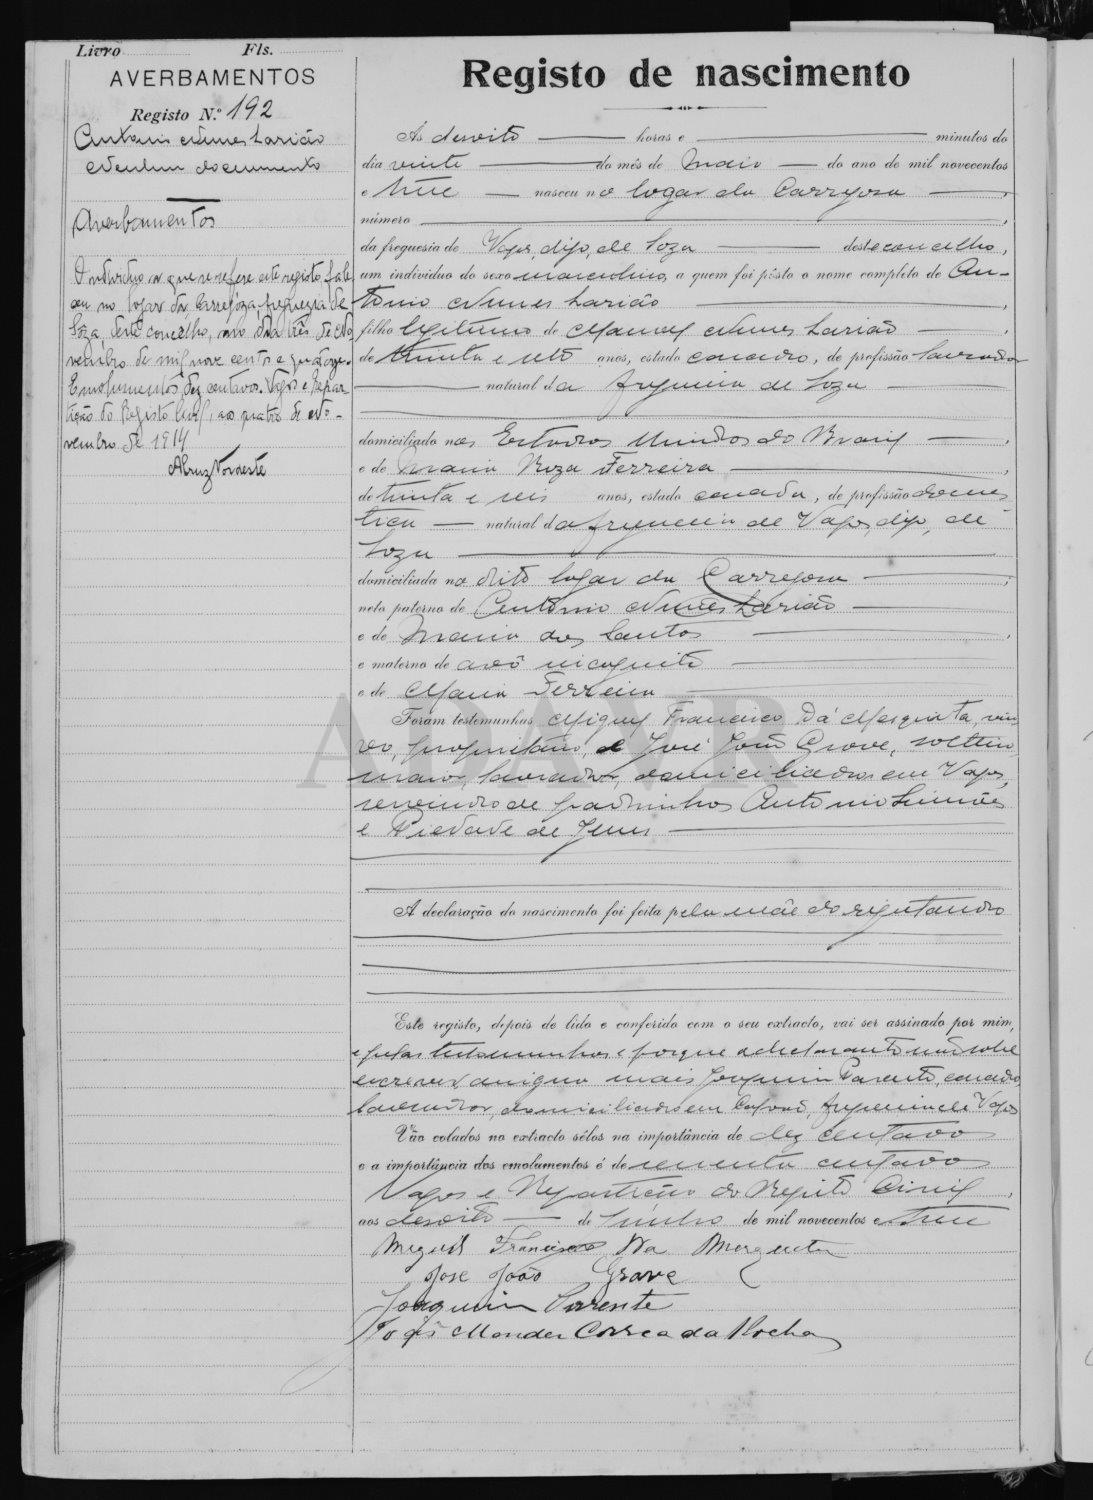 Livro Fls.
AVERBAMENTOS
Registo N.º 192
Antonio Nunes Larião
Nenhum documento
Averbamentos
O individuo a que se refere este registo, fale
ceu no logar da Carregoza, freguezia de
Soza, deste concelho, no dia três de No
vembro de mil nove centos e quatorze.
Emolumentos dez centavos. Vagos e Repar
tição do Registo Civil, aos quatro de No-
vembro de 1914
Registo de nascimento
Ás desoito horas e minutos do
dia vinte do mês de Maio do ano de mil novecentos
e treze nasceu no logar da Carregosa
número
da freguesia de Vagos, digo, de Soza deste concelho,
um individuo do sexo masculino, a quem foi pôsto o nome completo de An-
tonio Nunes Larião
filho legitimo de Manoel Nunes Larião
de trinta e sete anos, estado casado, de profissão lavrador
natural da freguesia de Soza
domiciliado nos Estados Unidos do Brazil
e de Maria Roza Ferreira
de trinta e seis anos, estado casada, de profissão domes
tica natural da freguesia de Vagos, digo, de
Soza
domiciliada no dito logar da Carregosa
neto paterno de Antonio Nunes Larião
e de Maria dos Santos
e materno de avô incognito
e de Maria Ferreira
Foram testemunhas Miguel Francisco Da Mesquita, viu
vo, proprietario, e José João Grave, solteiro
maior, lavrador, domiciliados em Vagos,
servindo de padrinhos Antonio Simões
e Piedade de Jesus
A declaração do nascimento foi feita pela mãe do registando
Este registo, depois de lido e conferido com o seu extracto, vai ser assinado por mim,
e pelas testemunhas e porque a declarante não sabe
escrever assigna mais Joaquim Parente, casado,
lavrador, domiciliado em freguesia de Vagos
Vão colados no extracto sêlos na importância de dez centavos
e a importância dos emolumentos é de sessenta centavos
Vagos e Repartição do Registo Civil
aos desoito de Junho de mil novecentos e treze
Miguel Francisco Da Mesquita
José João Grave
Joaquim Parente
João Mendes Correa da Rocha
ADAVR